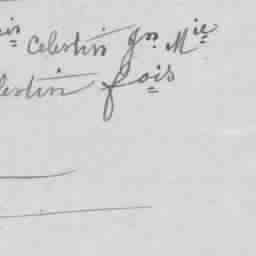 ois Celestin Jn Mie
lestin fois